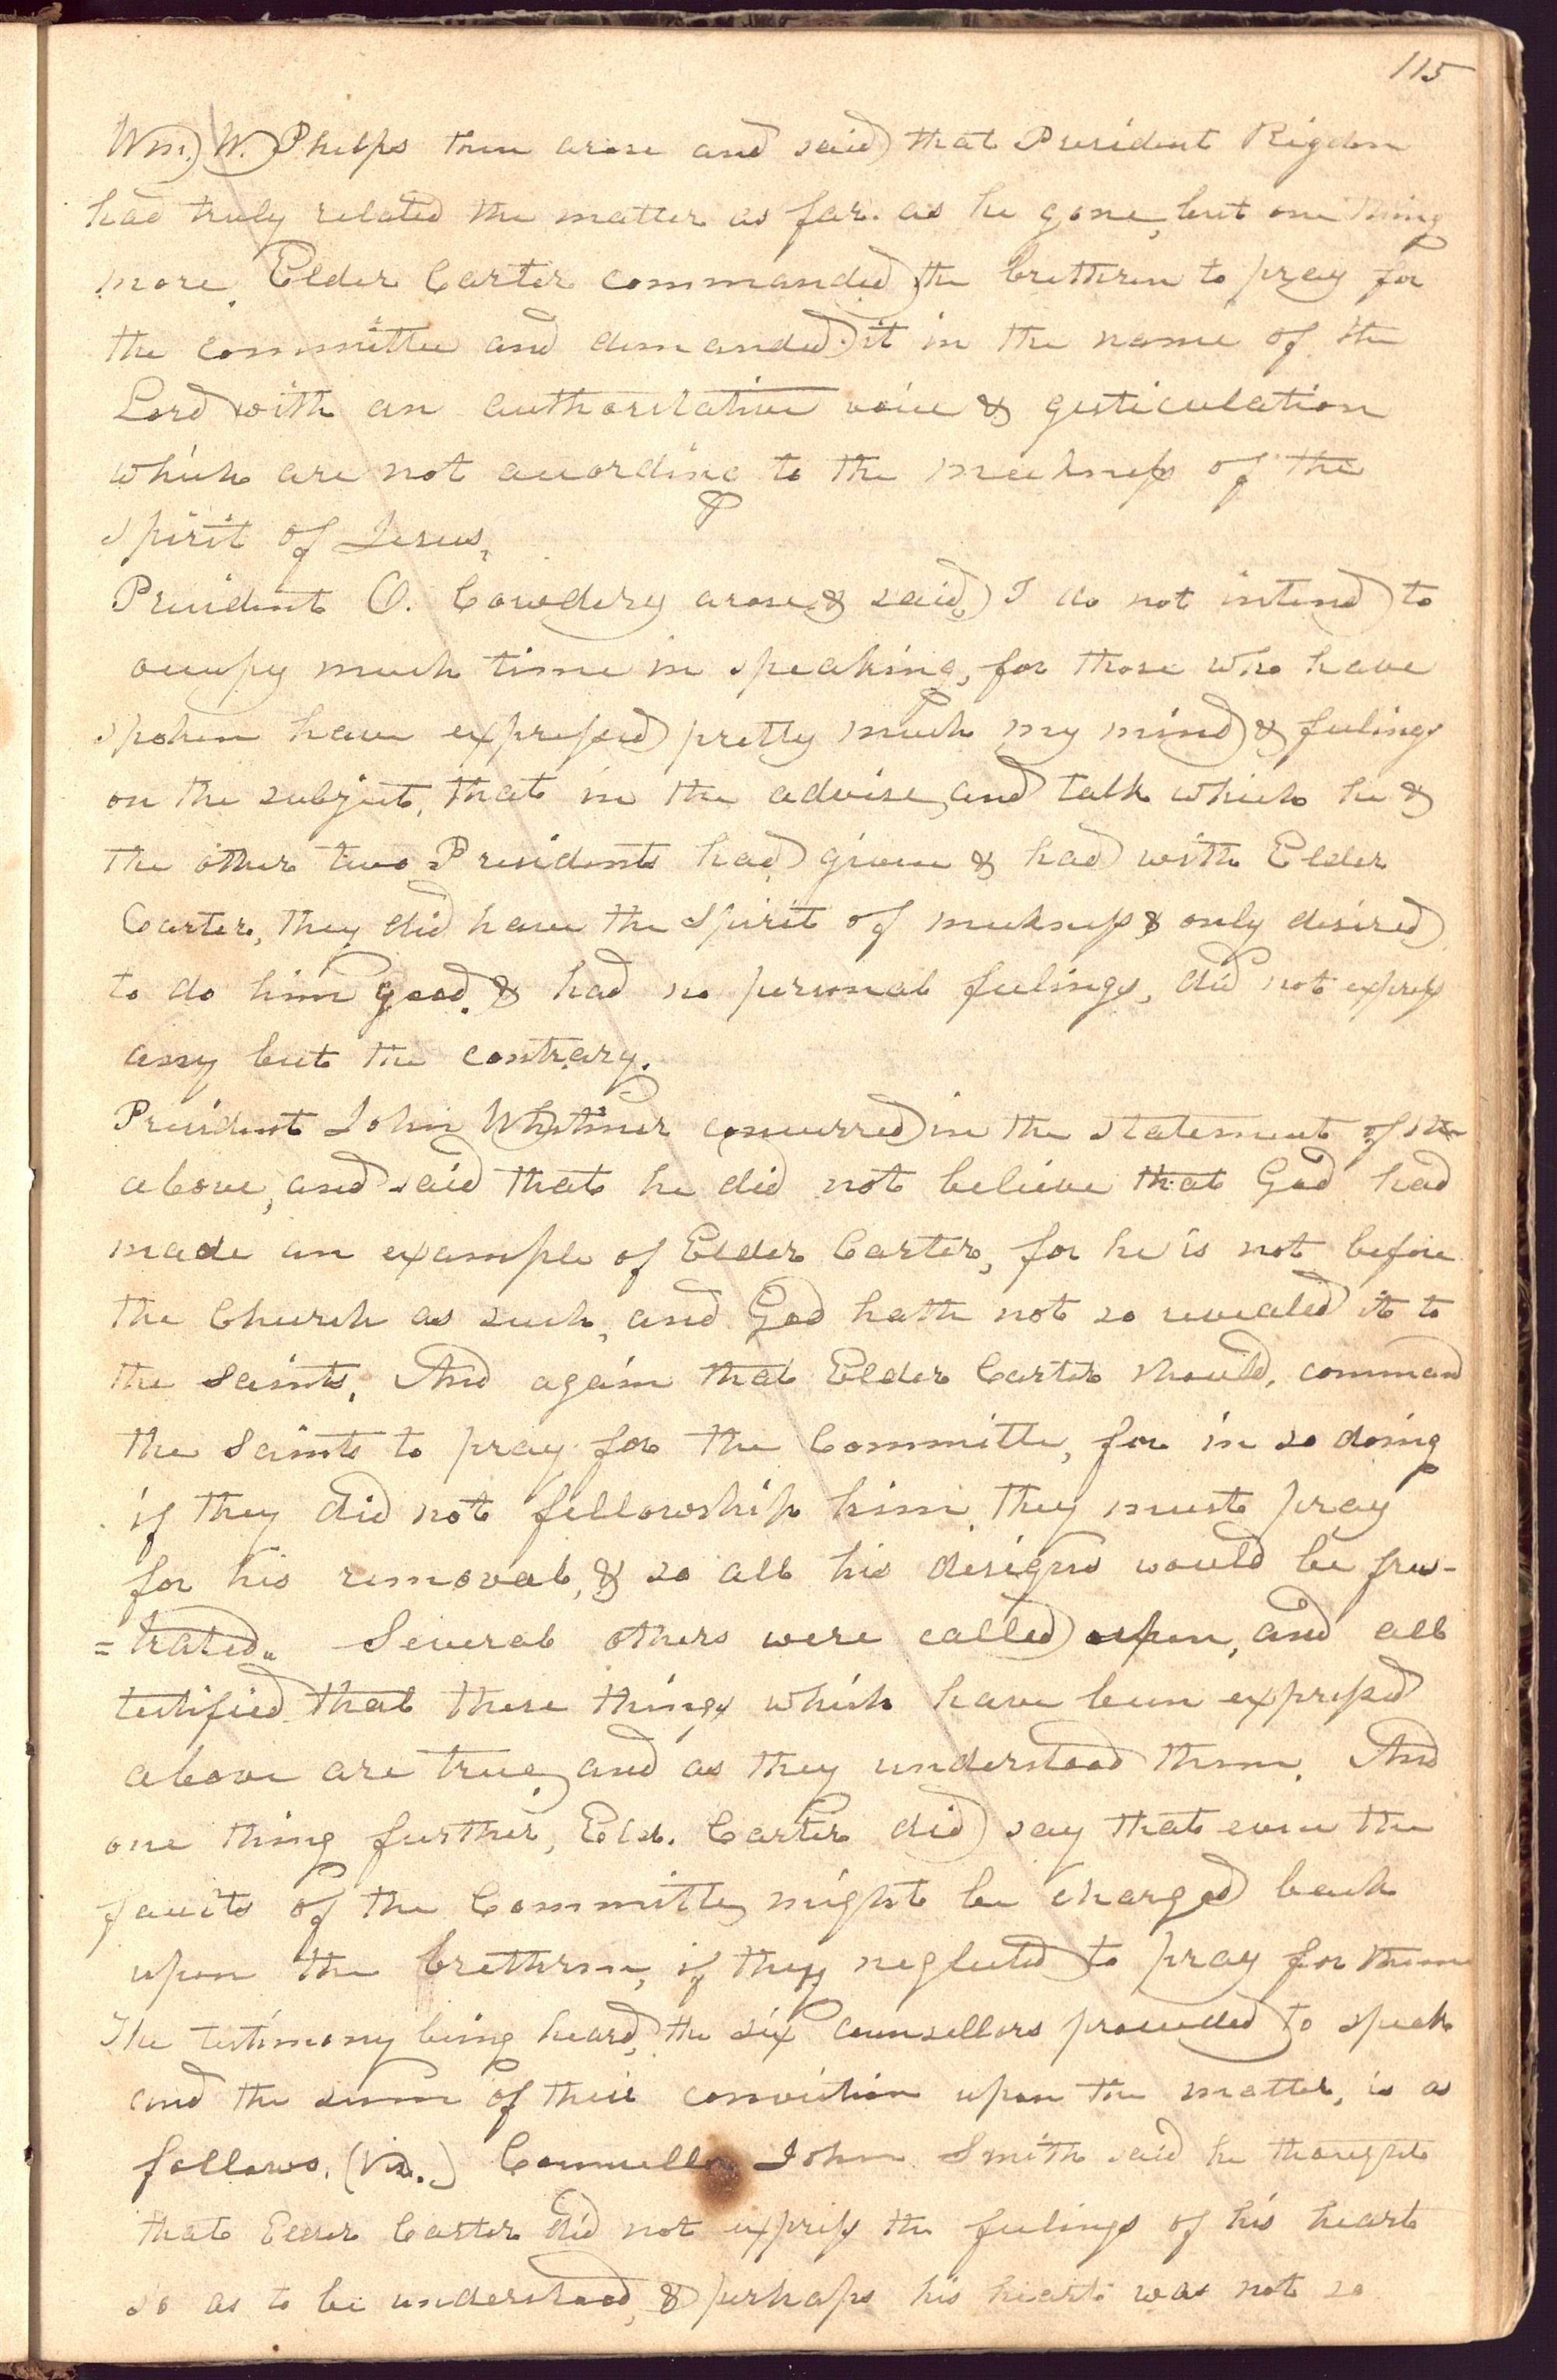 115
Wm. W. Phelps then arose and said that President Rigdon
had truly related the matter as far as he gone, but one thing
more. Elder Carter commanded the brethren to pray for
the committee and demanded it in the name of the
Lord with an authoritative voice & gesticulation
which are not according to the meekness of the
spirit of Jesus.
President O. Cowdery arose & said, I do not intend to
occupy much time in speaking, for those who have
spoken have expressed pretty much my mind & feelings
on the subject, that in the advise and talk which he &
the other two Presidents had given & had with Elder
Carter, they did have the Spirit of meekness & only desired
to do him good. & had no personal feelings, did not express
any but the contrary.
President John Whitmer concurred in the statement of the
above, and said that he did not believe that God had
made an example of Elder Carter, for he is not before
the Church as such, and God hath not so revealed it to
the Saints. And again that Elder Carter should, command
the Saints to pray for the Committe, for in so doing
if they did not fellowship him, they must pray
for his removal, & so all his designs would be frus-
=trated. Several others were called upon, and all
testified that these things which have been expressed
above are true, and as they understood them. And
one thing further, Eld. Carter did say that even the
faults of the Committe, might be charged back
upon the brethren, if they neglected to pray for them
The testimony being heard, the six counsellors proceeded to speak
and the sum of their conviction upon the matter, is as
follows. (Viz.) Councellor John Smith said he thought
that Elder Carter did not express the feelings of his heart
so as to be understood, & perhaps his heart was not so